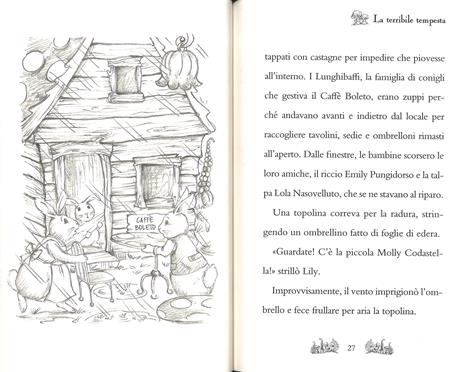 CAFFÈ
BOLETO
La terribile tempesta
tappati con castagne per impedire che piovesse
all'interno. I Lunghibaffi, la famiglia di conigli
che gestiva il Caffè Boleto, erano zuppi per-
ché andavano avanti e indietro dal locale per
raccogliere tavolini, sedie e ombrelloni rimasti
all'aperto. Dalle finestre, le bambine scorsero le
loro amiche, il riccio Emily Pungidorso e la tal-
pa Lola Nasovelluto, che se ne stavano al riparo.
Una topolina correva per la radura, strin-
gendo un ombrellino fatto di foglie di edera.
«Guardate! C'è la piccola Molly Codastel-
la!» strillò Lily.
Improvvisamente, il vento imprigionò l'om-
brello e fece frullare per aria la topolina.
27